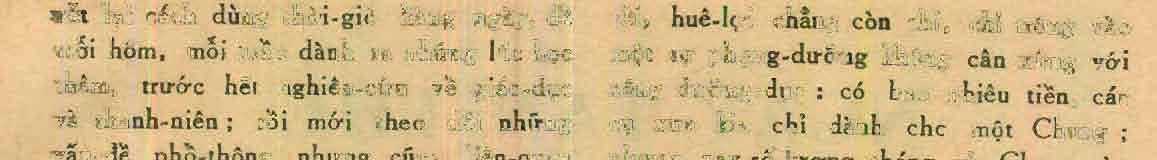 lại cách dùng thời-giờ hàng ngày, để
mỗi hôm, mỗi tuần dành ra những lúc học
thêm, trước hết nghiên-cứu về giáo-dục
và thanh-niên ; rồi mới theo dõi những
vấn-đề phổ-thông nhưng cũng
huê-lợi chẳng còn chi, chỉ
một sự phụng-dưỡng không cân xứng với
công dưỡng-dục : có bao nhiêu tiền, các
cụ xưa kia chỉ dành cho một Chung ;
nhưng nay số lượng